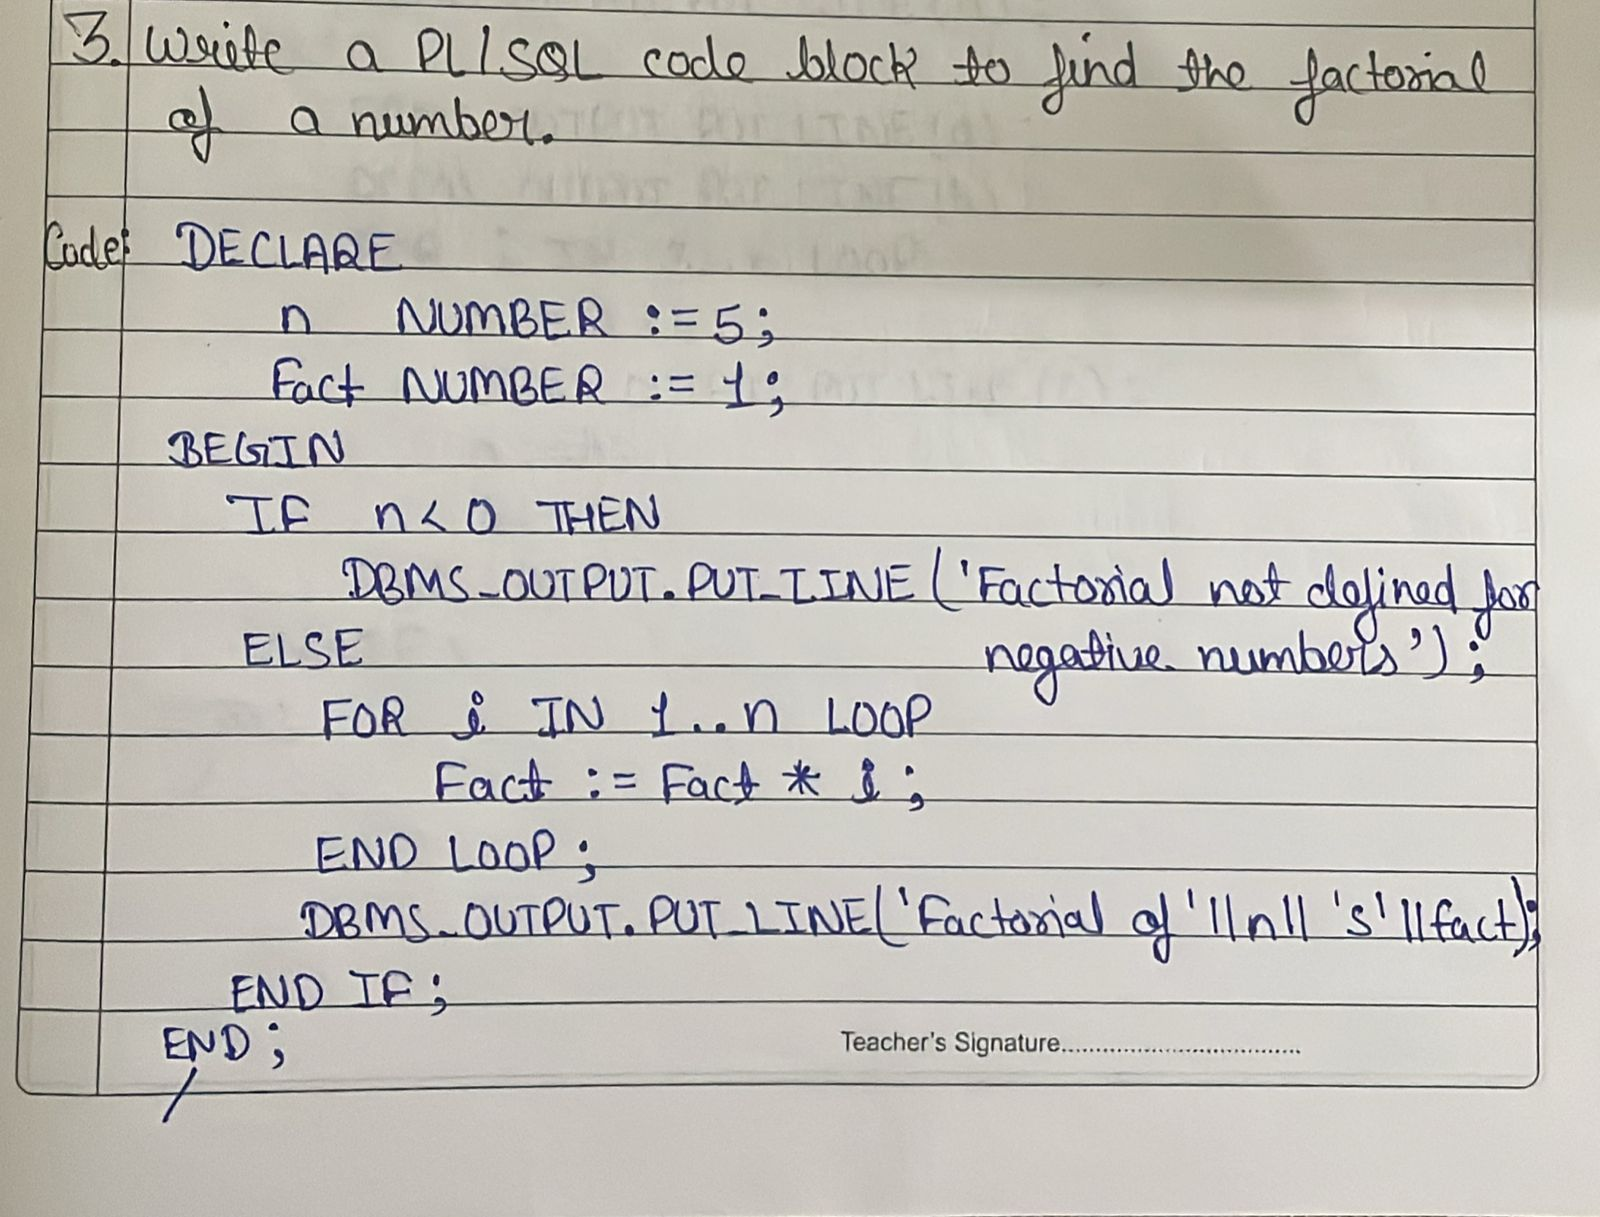 3. Write a PL/SQL code block to find the factorial
of a number.
Code: DECLARE
n NUMBER := 5;
Fact NUMBER := 1;
BEGIN
IF n < 0 THEN
DBMS_OUTPUT.PUT_LINE ('Factorial not defined for
negative numbers');
ELSE
FOR i IN 1..n LOOP
Fact := Fact * i;
END LOOP;
DBMS_OUTPUT.PUT_LINE('Factorial of '||n|| 's' ||fact);
END IF;
END;
/
Teacher's Signature..................................